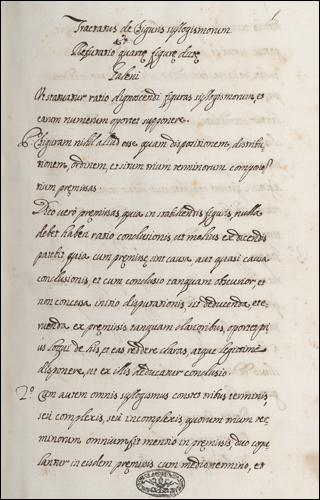 Tractatus de figuris syllogismorum
et
Refutatio quartę figurę dictę
Galeni
Ut statuatur ratio dignoscendi figuras syllogismorum, et
earum numerum oportet supponere.
Figuram nihil aliud esse, quam dispositionem, distribu
tionem, ordinem, et situm trium terminorum componen
tium pręmissas.
Dico vero pręmissas, quia in stabiliendis figuris, nulla
debet haberi ratio conclusionis, ut melius ex dicendis
patebit, quia cum pręmissę sint causa aut quasi causa
conclusionis, et cum conclusio tanquam obscurior, et
non concessa initio disputationis, sit deducenda, et e
ruenda ex pręmissis tanquam clarioribus, oportet pri
us loqui de his, et eas reddere claras, atque legitimè
disponere, ut ex illis deducatur conclusio.
2º Cum autem omnis syllogismus constet tribus terminis
seu complexis, seu incomplexis, quorum trium ter
minorum omnium fit mentio in pręmissis, duo copu
lantur in eisdem pręmissis cum medio termino, et